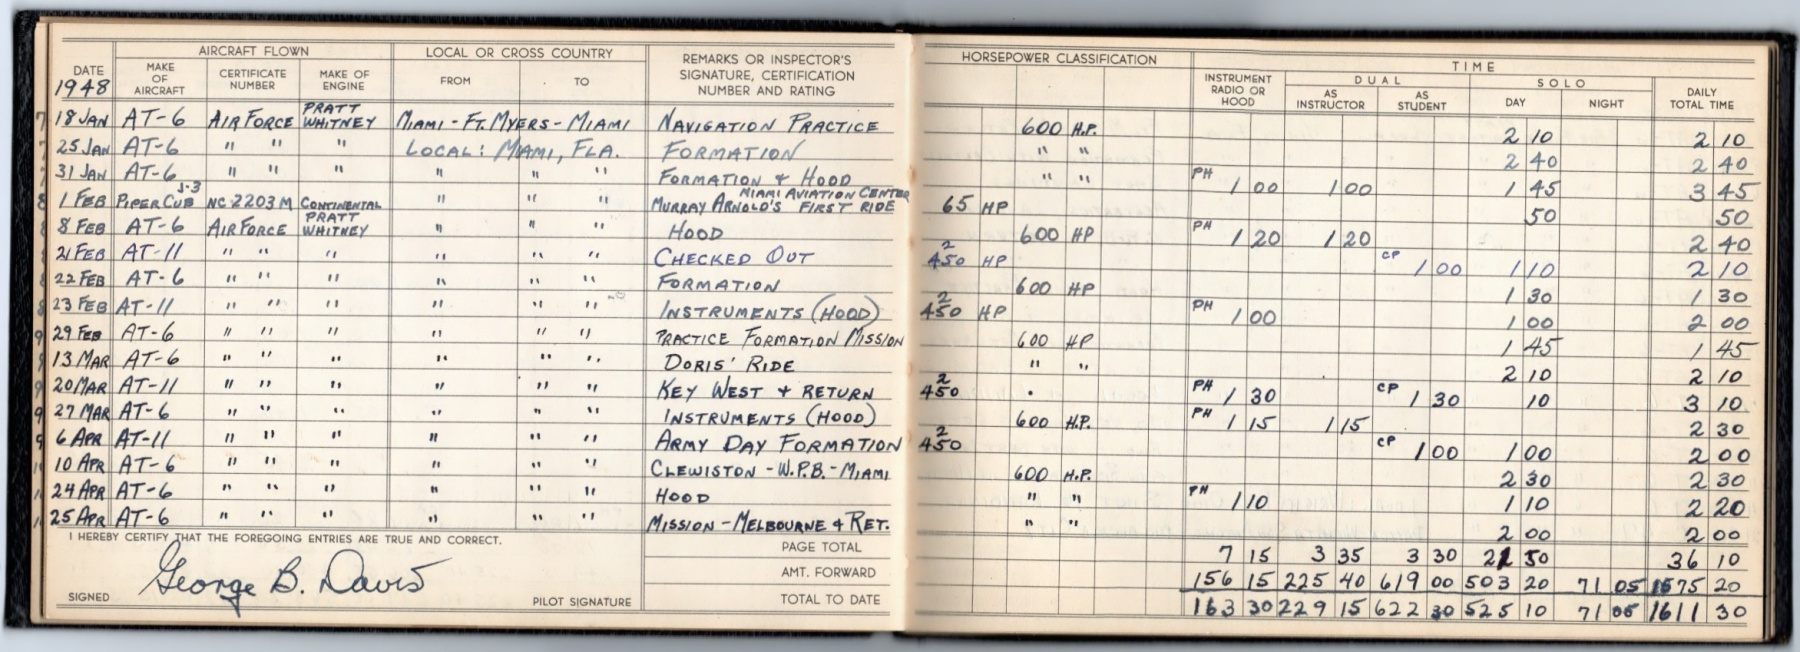 AIRCRAFT FLOWN LOCAL OR CROSS COUNTRY REMARKS OR INSPECTOR'S SIGNATURE, CERTIFICATION NUMBER AND RATING HORSEPOWER CLASSIFICATION TIME
DATE 1948 MAKE OF AIRCRAFT CERTIFICATE NUMBER MAKE OF ENGINE FROM TO INSTRUMENT RADIO OR HOOD DUAL AS INSTRUCTOR AS STUDENT SOLO DAY NIGHT DAILY TOTAL TIME
7 18 JAN AT-6 AIR FORCE PRATT WHITNEY MIAMI - FT. MYERS - MIAMI NAVIGATION PRACTICE 600 H.P. 2 10 2 10
7 25 JAN AT-6 " " " LOCAL: MIAMI, FLA. FORMATION " " 2 40 2 40
7 31 JAN AT-6 " " " " " " FORMATION & HOOD " " PH 1 00 1 00 1 45 3 45
8 1 FEB PIPER CUB J-3 NC 2203M CONTINENTAL " " " MIAMI AVIATION CENTER MURRAY ARNOLD'S FIRST RIDE 65 HP 50 50
8 8 FEB AT-6 AIR FORCE PRATT WHITNEY " " " HOOD 600 HP PH 1 20 1 20 2 40
8 21 FEB AT-11 " " " " " " CHECKED OUT 2 450 HP CP 1 00 1 10 2 10
8 22 FEB AT-6 " " " " " " FORMATION 600 HP 1 30 1 30
8 23 FEB AT-11 " " " " " " INSTRUMENTS (HOOD) 2 450 HP PH 1 00 1 00 2 00
9 29 FEB AT-6 " " " " " " PRACTICE FORMATION MISSION 600 HP 1 45 1 45
9 13 MAR AT-6 " " " " " " DORIS' RIDE " " 2 10 2 10
9 20 MAR AT-11 " " " " " " KEY WEST & RETURN 2 450 PH 1 30 CP 1 30 10 3 10
9 27 MAR AT-6 " " " " " " INSTRUMENTS (HOOD) 600 H.P. PH 1 15 1 15 2 30
9 6 APR AT-11 " " " " " " ARMY DAY FORMATION 2 450 CP 1 00 1 00 2 00
10 APR AT-6 " " " " " " CLEWISTON - W.P.B. - MIAMI 600 H.P. 2 30 2 30
24 APR AT-6 " " " " " " HOOD " " PH 1 10 1 10 2 20
25 APR AT-6 " " " " " " MISSION - MELBOURNE & RET. " " 2 00 2 00
I HEREBY CERTIFY THAT THE FOREGOING ENTRIES ARE TRUE AND CORRECT. PAGE TOTAL 7 15 3 35 3 30 21 50 36 10
George B. Davis AMT. FORWARD 156 15 225 40 619 00 503 20 71 05 1575 20
SIGNED PILOT SIGNATURE TOTAL TO DATE 163 30 229 15 622 30 525 10 71 05 1611 30